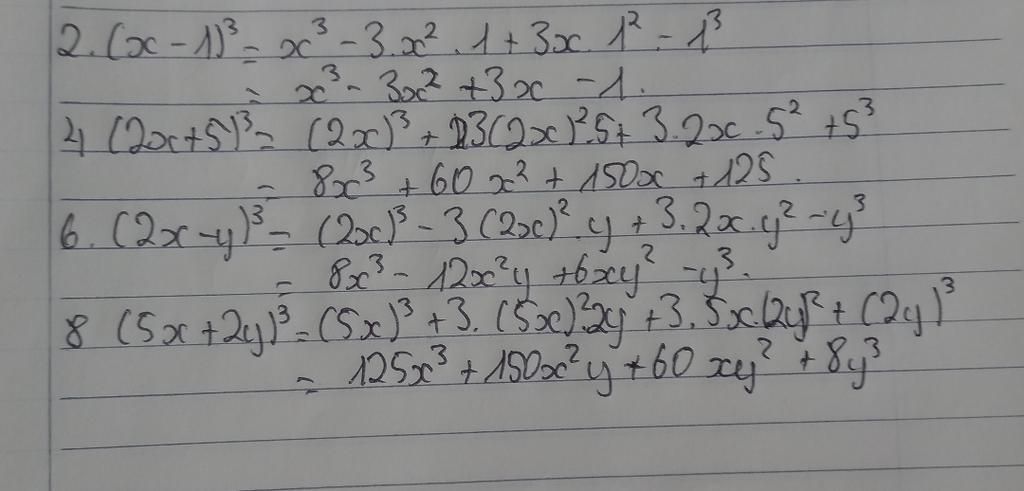 2. (x - 1)³ = x³ - 3.x² . 1 + 3x. 1² - 1³
= x³ - 3x² + 3x - 1.
4 (2x+5)³ = (2x)³ + 3(2x)².5 + 3.2x.5² + 5³
= 8x³ + 60x² + 150x + 125.
6. (2x-y)³ = (2x)³ - 3(2x)².y + 3.2x.y² - y³
= 8x³ - 12x²y + 6xy² - y³.
8 (5x+2y)³ = (5x)³ + 3.(5x)².2y + 3.5x.(2y)² + (2y)³
= 125x³ + 150x²y + 60xy² + 8y³